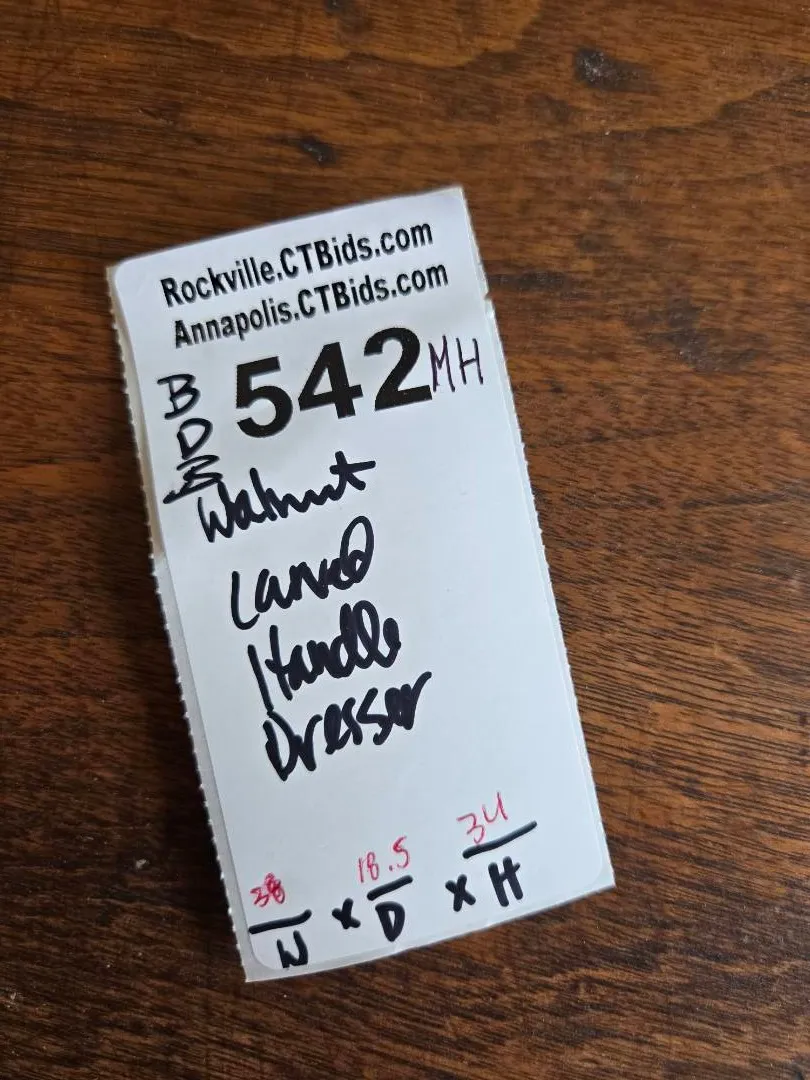 Rockville.CTBids.com
Annapolis.CTBids.com
542 MH
B
D
B
Walnut
Carved
Handle
Dresser
38 18.5 34
W x D x H